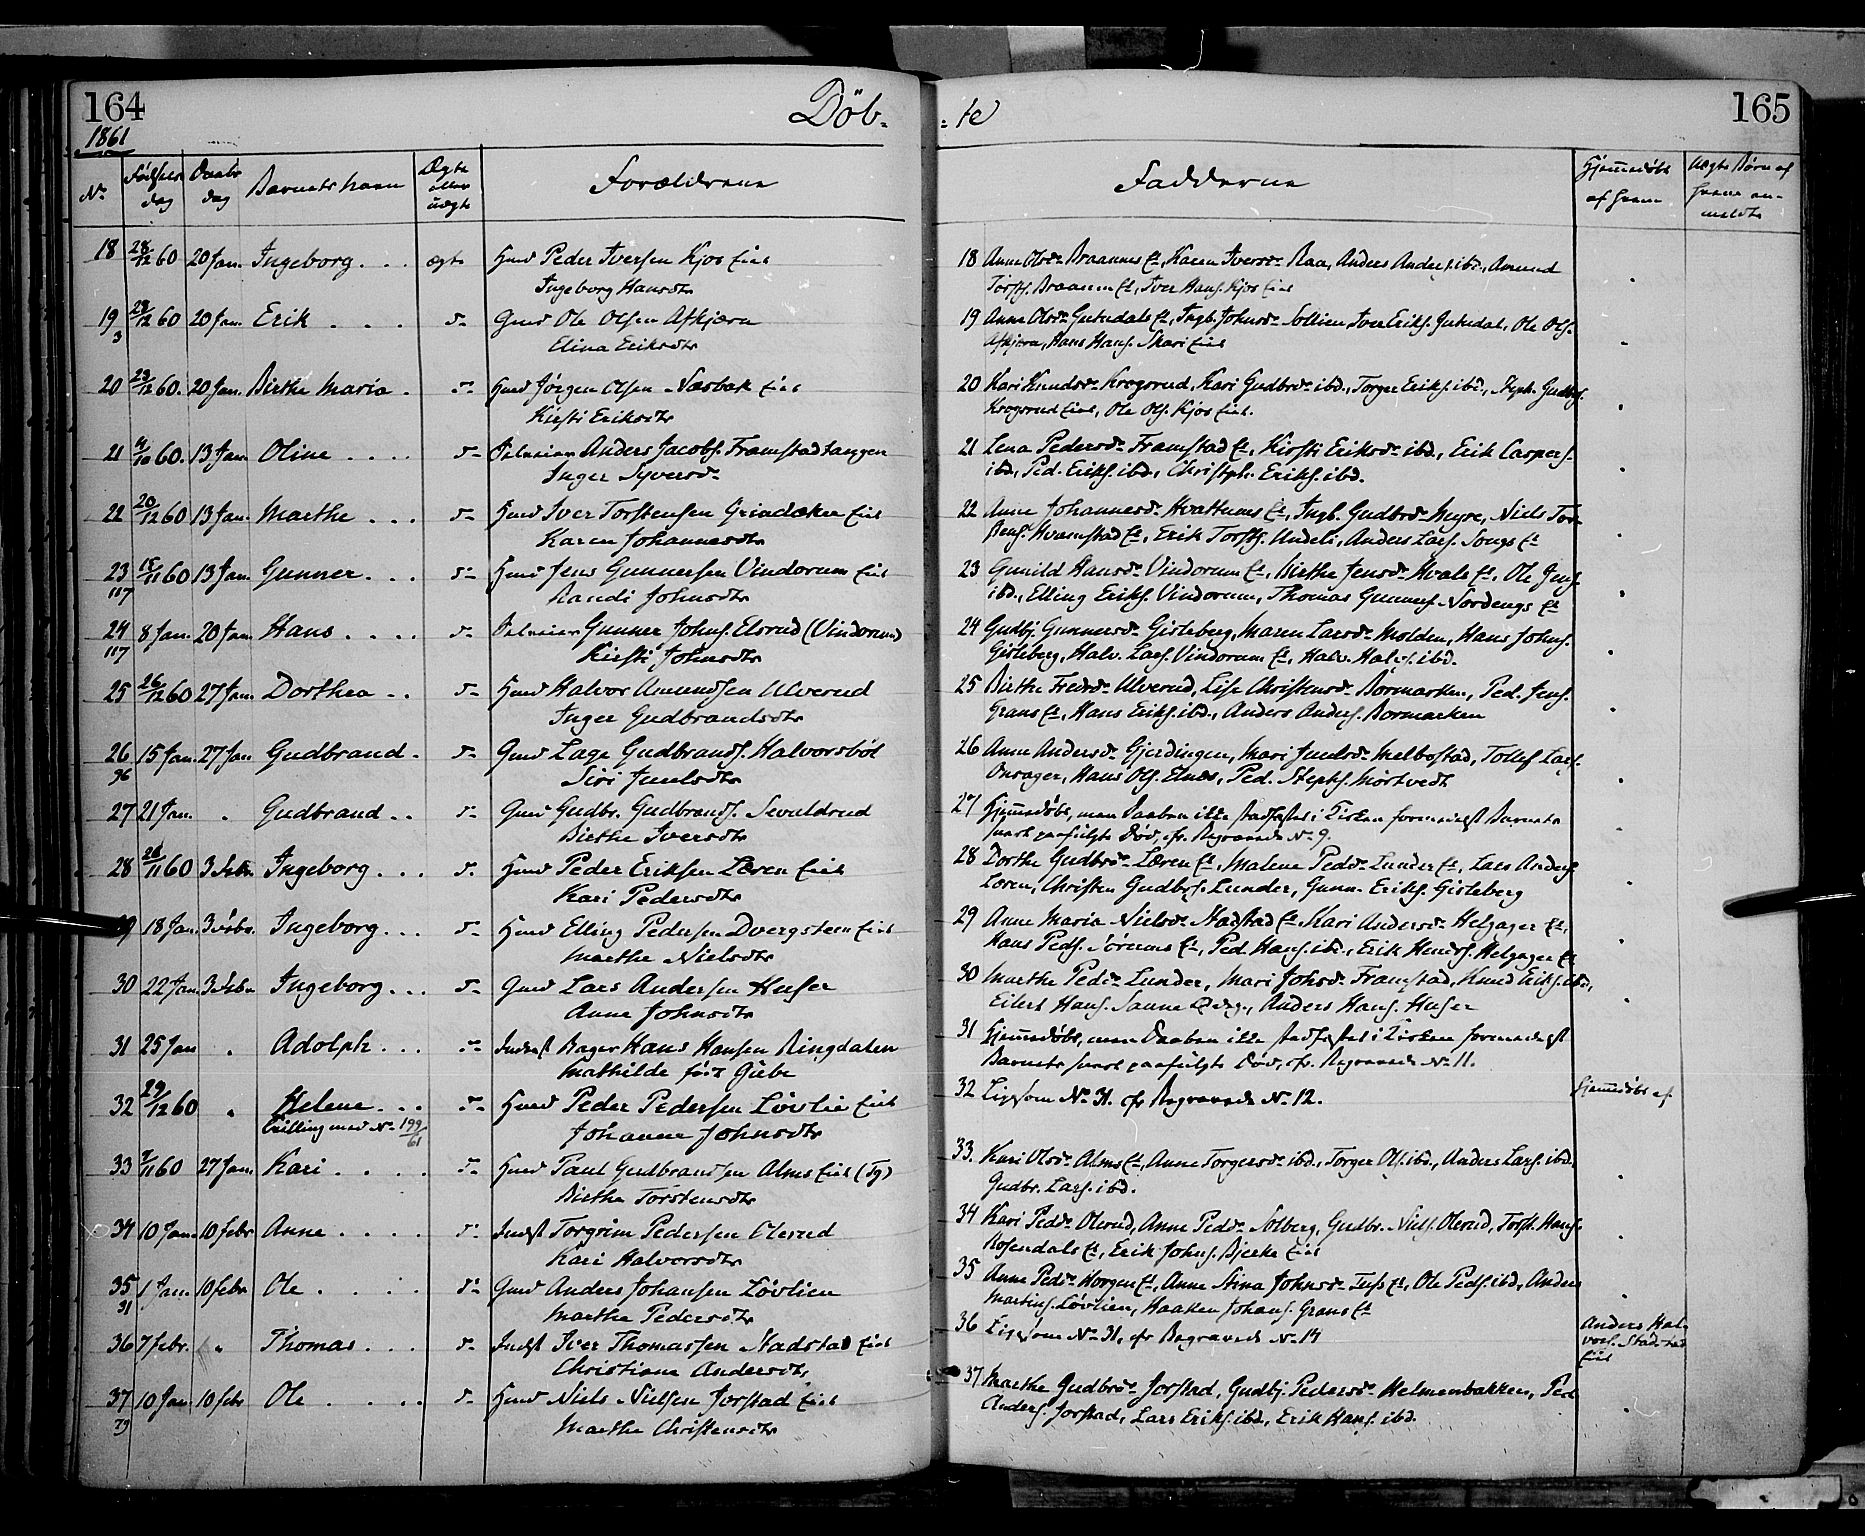 164
1861
Døb-
No
Fødsels dag
Daabs dag
Barnets Navn
Ægte eller uægte
Forældrene
18 28/12 60 20 Jan. Ingeborg . . . ægte Huusm Peder Iversen Kjos Eiet
Ingeborg Hansdtr
19 28/12 60 20 Jan. Erik . . . . Gmd Ole Olsen Afkjærn
3 Elina Eriksdtr
20 23/12 60. 20 Jan. Birthe Maria . Jørgen Olsen Næsbak Eiet
Kirsti Eriksdtr
21 4/10 60. 13 Jan. Oline . . . . Anders Jacobs. Framstadtangen
Inger Syversd.
22 20/12 60 13 Jan. Marthe . . . Iver Torstensen Grindaker Eiet
Karen Johannesdtr
23 15/11 60 13 Jan. Gunner . . . Jens Gunnersen Vindorum Eiet
117 Randi Johnsdtr
24 8 Jan. 20 Jan. Hans . . . . Gunner Johns. Elsrud (Vindorum)
117 Kirsti Johnsdtr
25 26/12 60 27 Jan. Dorthea . . Halvor Amundsen Ulverud
Inger Gudbrandsdtr
26 15 Jan. 27 Jan. Gudbrand . Gmd Lage Gudbrands. Halvorsbøl
96 Siri Juulsdtr
27 21 Jan. " Gudbrand . . Gmd Gudbr. Gudbrands. Sevaldrud
Birthe Iversdtr
28 26/11 60 3 Febr. Ingeborg . . . Peder Eriksen Læren Eiet
Kari Pedersdtr
29 18 Jan. 3 Febr. Ingeborg . . . Elling Pedersen Dvergsteen Eiet
Marthe Nielsdtr
30 22 Jan. 3 Febr. Ingeborg . . . Gmd Lars Andersen Huser
Anne Johnsdtr
31 25 Jan " Adolph . . . Inderst Bager Hans Hansen Ringdalen
Mathilde født Giebe
32 29/12 60 " Helene . . . Peder Pedersen Løvlie Eiet
Tvilling med No 199/61 Johanne Johnsdtr
33 7/11 60 27 Jan. Kari . . . . Paul Gudbrandsen Alms Eiet (Fg)
Birthe Torstensdtr
34 10 Jan. 10 Febr. Anne . . . . Inderst Torgrim Pedersen Olerud
Kari Halvorsdtr
35 1 Jan. 10 Febr Ole . . . . Gmd Anders Johansen Løvlien
31 Marthe Pedersdtr
36 7 Febr. " Thomas . . . Inderst Iver Thomassen Stadstad Eiet
Christiane Andersdtr
37 10 Jan 10 Febr Ole . . . . Niels Nielsen Jorstad Eiet
79 Marthe Christensdtr
-te
165
Fadderne
Hjemmedøbt af hvem
Uægte Børn af hvem an-meldt
18 Anne Olsdr Braannes Et, Karen Iversdr Raa, Anders Anders. ibd., Amund
Torst. Braanen Et, Iver Hans. Kjos Eiet
19 Anne Olsdr Gutudals Et, Ingb. Johnsdr Sollien Iver Eriks. Gutudal, Ole Ols.
Afkjærn, Hans Hans. Skari Eiet
20 Kari Knudsdr Krogsrud, Kari Gudbrdr ibd., Torger Eriks. ibd., Steph. Gudbr.
Krogsrud Eiet, Ole Ols. Kjos Eiet.
21 Lena Pedersdr Framstad Et, Kirsti Eriksdr ibd., Erik Caspers.
ibd., Ped. Eriks. ibd., Christph. Eriks. ibd.
22 Anne Johannesdr Hvattums Et, Ingb. Gudbrdr Myre, Niels Tor-
stens. Kvamstad Et, Erik Torst. Undeli, Anders Lars. Songs Et
23 Gunild Hansdr Vindorum Et, Birthe Jensdr Hvals Et, Ole Jens.
ibd., Elling Eriks. Vindorum, Thomas Gunners. Nordengs Et
24 Gudbj. Gunnersdr Gisleberg, Maren Larsdr Molden, Hans Johns.
Gisleberg, Halv. Lars. Vindorum Et, Halv. Halvs. ibd.
25 Birthe Fredrdr Ulverud, Lise Christensdr Bormarken, Ped. Jens.
Grans Et, Hans Eriks. ibd., Anders Anders. Bormarken
26 Anne Andersdr Gjerdingen, Mari Juulsdr Melbostad, Tollef Lars.
Onsager, Hans Ols. Elnes, Ped. Stephs. Mortvedt
27 Hjemmedøbt, men Daaben ikke stadfæstet i Kirken formedelst Barnets
snart paafulgte Død, cfr. Begravede No 9.
28 Dorthe Gudbrdr Læren Et, Malene Pedsdr Lunder Et, Lars Anders.
Læren, Christen Gudbrs. Lunder, Gunn. Eriks. Gisleberg
29 Anne Maria Nielsdr Stadstad Et Kari Andersdr Helgager Et,
Hans Peds. Sørums Et, Ped. Hans. ibd., Erik Henrs. Helgager Et
30 Marthe Pedsdr Lunder, Mari Johsdr Framstad, Knud Eriks. ibd.,
Eilert Hans. Sanneeberg, Anders Hans. Huser
31 Hjemmedøbt, men Daaben ikke stadfæstet i Kirken formedelst
Barnets snart paafulgte Død, cfr. Begravede No 11.
32 Ligesom No 31. cfr Begravede No 12. Hjemmedøbt af
33. Kari Olsdr Alms Et, Anne Torgersdr ibd., Torger Ols. ibd., Anders Lars. ibd.
Gudbr. Lars. ibd.
34 Kari Pedsdr Olerud, Anne Pedsdr Solberg, Gudbr. Niels. Olerud, Torst. Hans.
Rosendals Et, Erik Johns. Bjerke Eiet
35 Anne Pedsdr Horgen Et, Anne Stina Johnsdr Tuss Et, Ole Peds. ibd., Anders
Martins. Løvlien, Haaken Johans. Grans Et
36 Ligesom No 31, cfr Begravede No 14 Anders Hal-
vors. Stad-stad
Eiet
37 Marthe Gudbrdr Jorstad, Gudbj. Pedersdr Helmenbakken, Ped
Anders. Jorstad, Lars Eriks. ibd., Erik Hans. ibd.